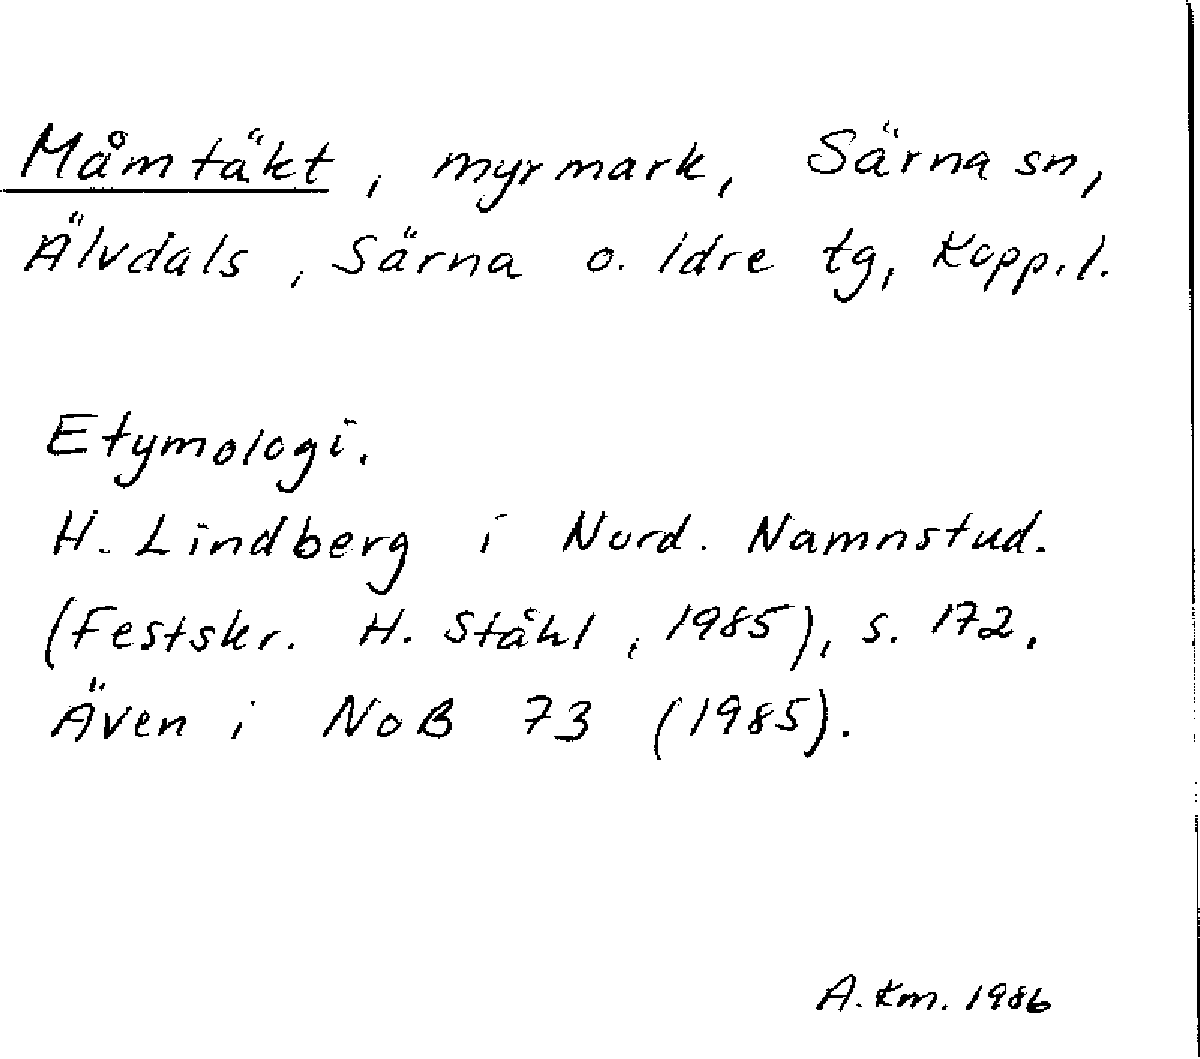 Måmtäkt, myrmark, Särna sn,
Älvdals, Särna o. Idre tg, Kopp.l.
Etymologi.
H. Lindberg i Nord. Namnstud.
(Festskr. H. Ståhl, 1985), s. 172.
Även i NoB 73 (1985).
A. Km. 1986